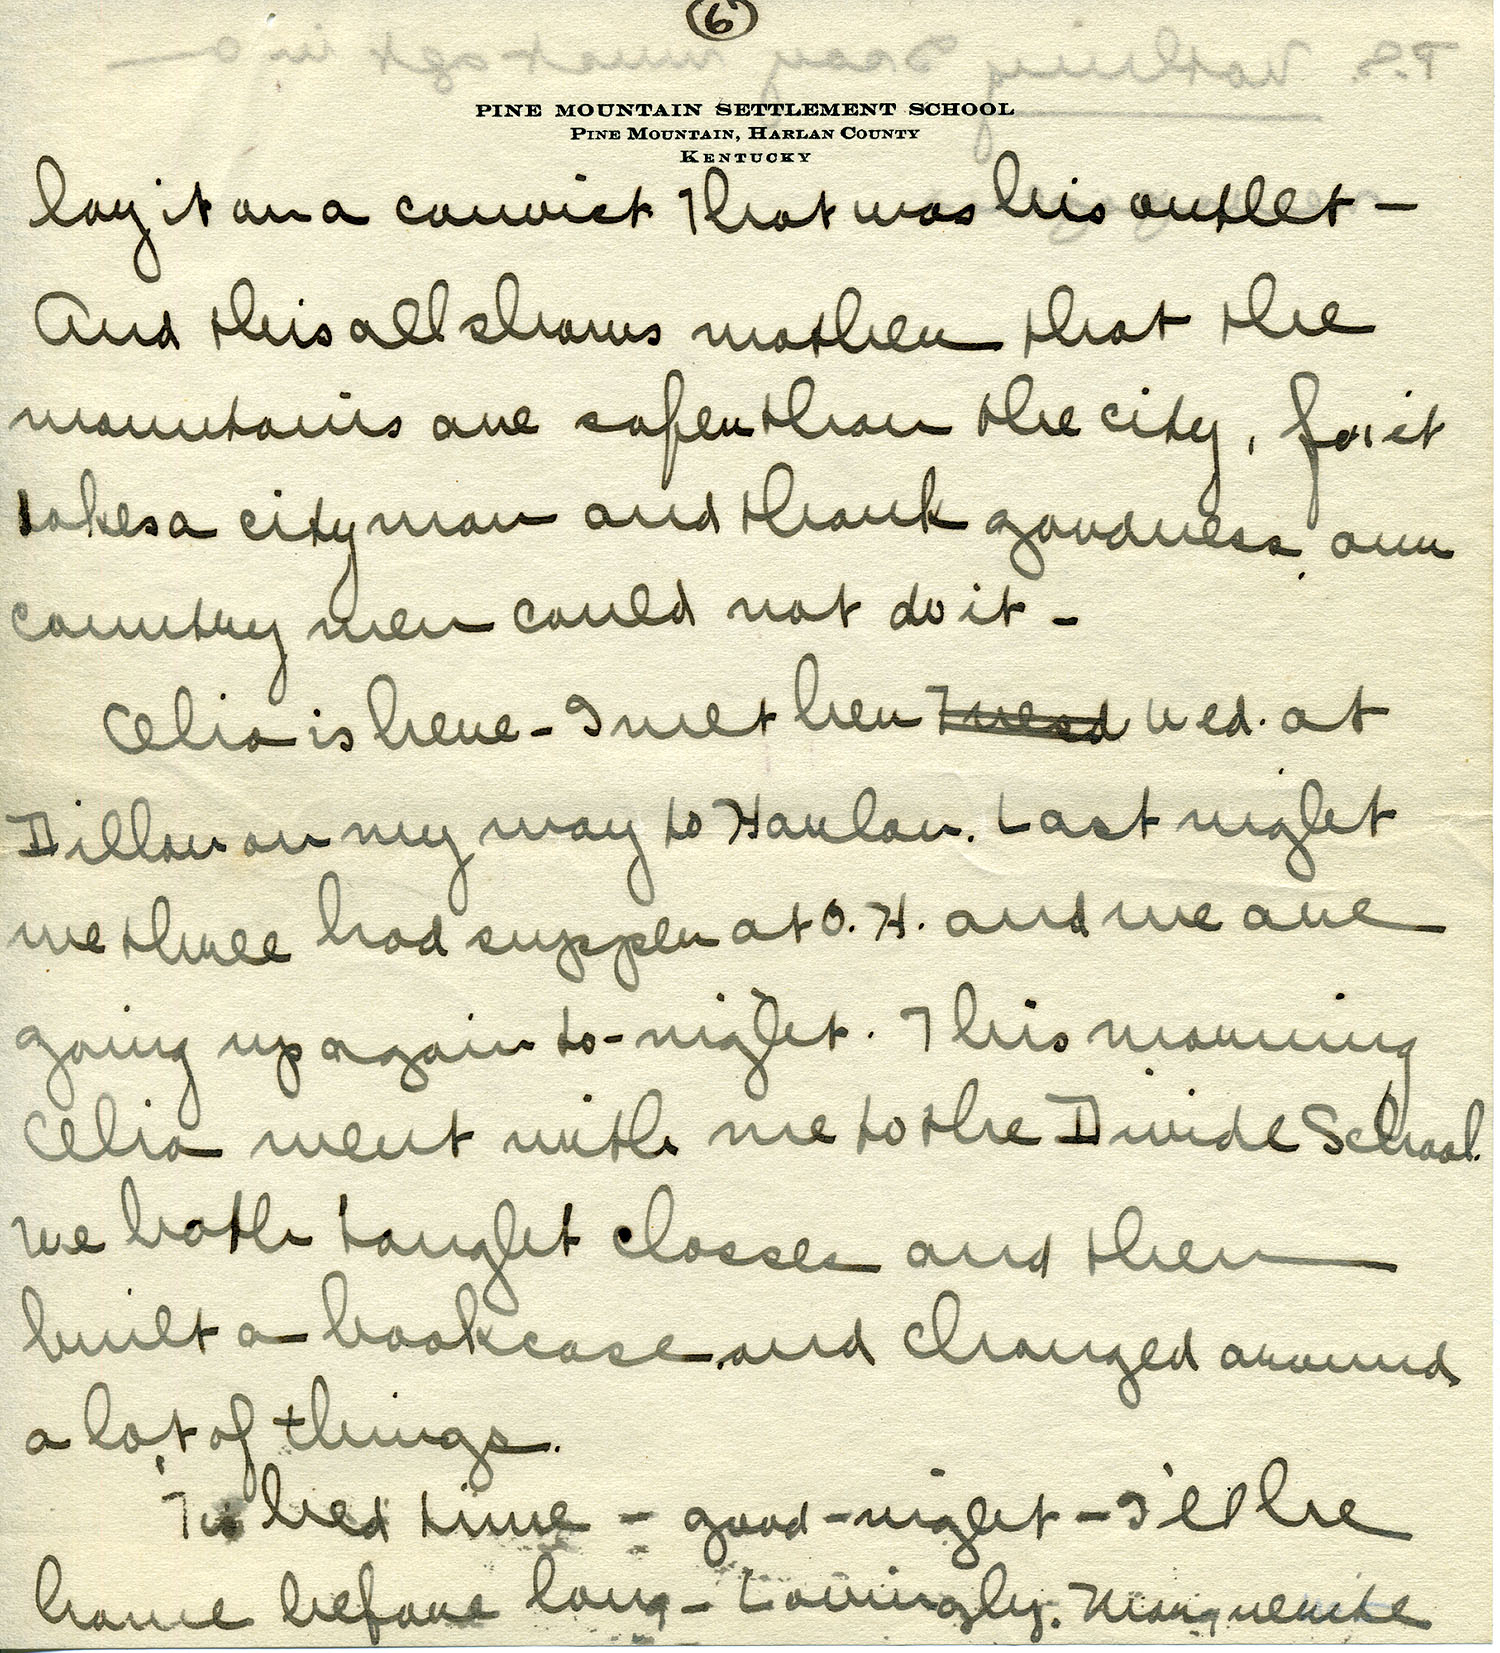 6
PINE MOUNTAIN SETTLEMENT SCHOOL
PINE MOUNTAIN, HARLAN COUNTY
KENTUCKY
lay it on a convict That was his outlet –
And this all shows mother that the
mountains are safer than the city, for it
takes a city man and thank goodness, our
country men could not do it –
Celia is here – I met her Wed. at
Dillon on my way to Harlan. Last night
we three had supper at O. H. and we are
going up again to-night. This morning
Celia went with me to the Divide School.
We both taught classes and then
built a bookcase and changed around
a lot of things.
'Tis bed time – good-night – I'll be
home before long – Lovingly. Marguerite